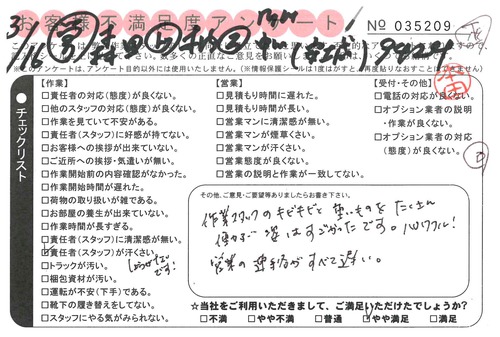 お客様不満足度アンケート
No 035209
チェックリスト
【作業】
□責任者の対応(態度)が良くない。
□他のスタッフの対応(態度)が良くない。
□作業を見ていて不安がある。
□責任者(スタッフ)に好感が持てない。
□お客様への挨拶が出来ていない。
□ご近所への挨拶・気遣いが無い。
□作業開始前の内容確認がなかった。
□作業開始時間が遅れた。
□荷物の取り扱いが雑である。
□お部屋の養生が出来ていない。
□作業時間が長すぎる。
□責任者(スタッフ)に清潔感が無い。
□責任者(スタッフ)が汗くさい。
□トラックが汚い。
□梱包資材が汚い。
□運転が不安(下手)である。
□靴下の履き替えをしてない。
□スタッフにやる気がみられない。
【営業】
□見積もり時間に遅れた。
□見積もり時間が長い。
□営業マンに清潔感が無い。
□営業マンが煙草くさい。
□営業マンが汗くさい。
□営業態度が良くない。
□営業の説明と作業が一致してない。
【受付・その他】
□電話の対応が良くない。
□オプション業者の説明
・作業が良くない。
□オプション業者の対応
(態度)が良くない。
その他、ご意見・ご要望等ありましたらお書き下さい。
作業スタッフのキビキビと重いものをたくさん
運ぶ姿はすごかったです。パワフル!
営業の連絡がすべて遅い。
☆当社をご利用いただきまして、ご満足いただけたでしょうか?
□不満 □やや不満 □普通 □やや満足 □満足